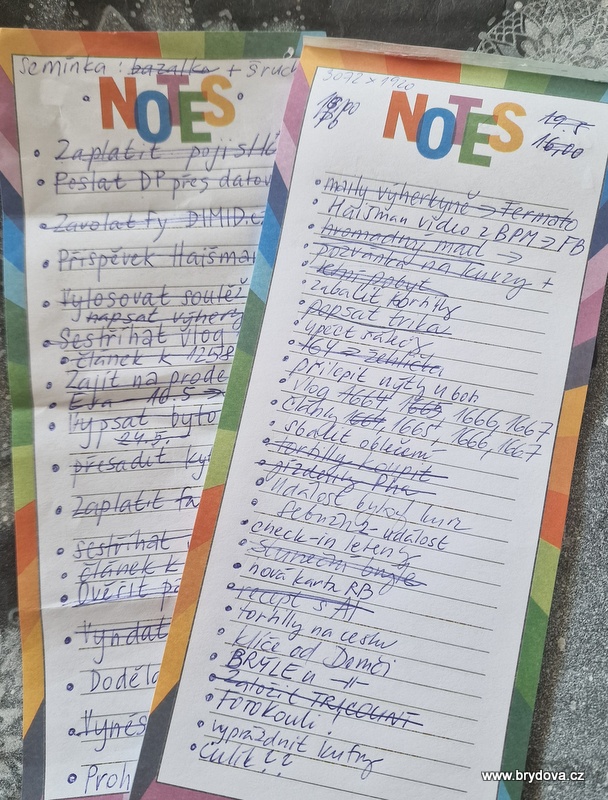 semínka : bazalka +
NOTES
Zaplatit
Poslat DP přes datov
Zavolat fy DIMID.c
Příspěvek Hajšma
Vylosovat soutěž
napsat výherky
Sestříhat vlog
článek k 1258
Zajít na prode
EJA 10.5 →
Vypsat bylo
24.5.
přesadit
Zaplatit
sestříhat
článek k
Ověřit
Vyndat
Doděla
Vynés
Proh
3072 x 1920
NOTES
19.5
16,00
maily výherkyně → Termoto
Hajšman video z BPM → FB
hromadný mail →
pozvánka na kurzy +
zabalit tortilly
popsat trika
upéct
přilepit nýty u boh
vlog 1664 1665 1666, 1667
články 1664, 1665, 1666, 1667
sbalit oblečení
tortilly koupit
Událost kurz
událost
check-in letenky
nová karta RB
recept s AI
tortilly na cestu
klíče od
BRÝLE u -||-
založit TRICOUNT
FOTOKOULI!
vyprázdnit kufry
Culík??
www.brydova.cz